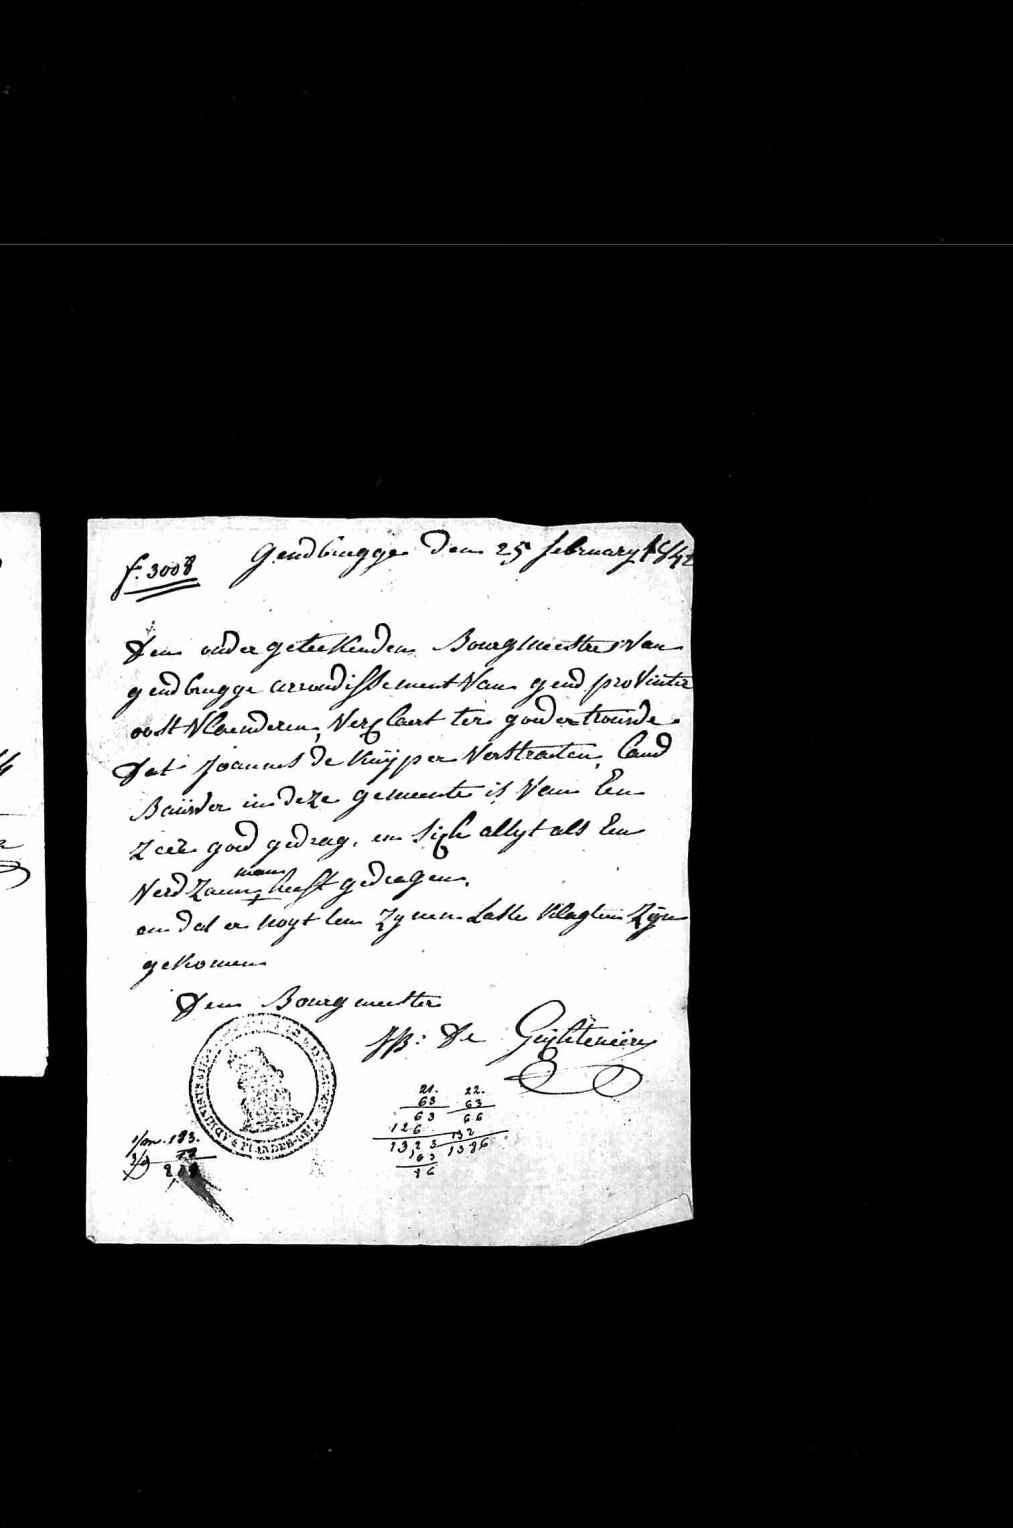 f. 3008
Gendbrugge den 25 february 1842
Den onder geteekenden Bourgmeester van
gendbrugge arrondissement van gend provintie
oost vlaenderen, verclaert ter goeder trouwde
Dat joannes de Kuijper verstraeten, land
Bauwder in deze gemeente is van een
zeer goed gedrag, en sigh altyt als een
verdzaem man heeft gedragen.
en dat er noyt ten zynen laste klagten zijn
gekomen
Den Bourgmeester
JB: De Guchteneire
21. 22.
63 63
63 66
126 132
1323 1386
63
183.